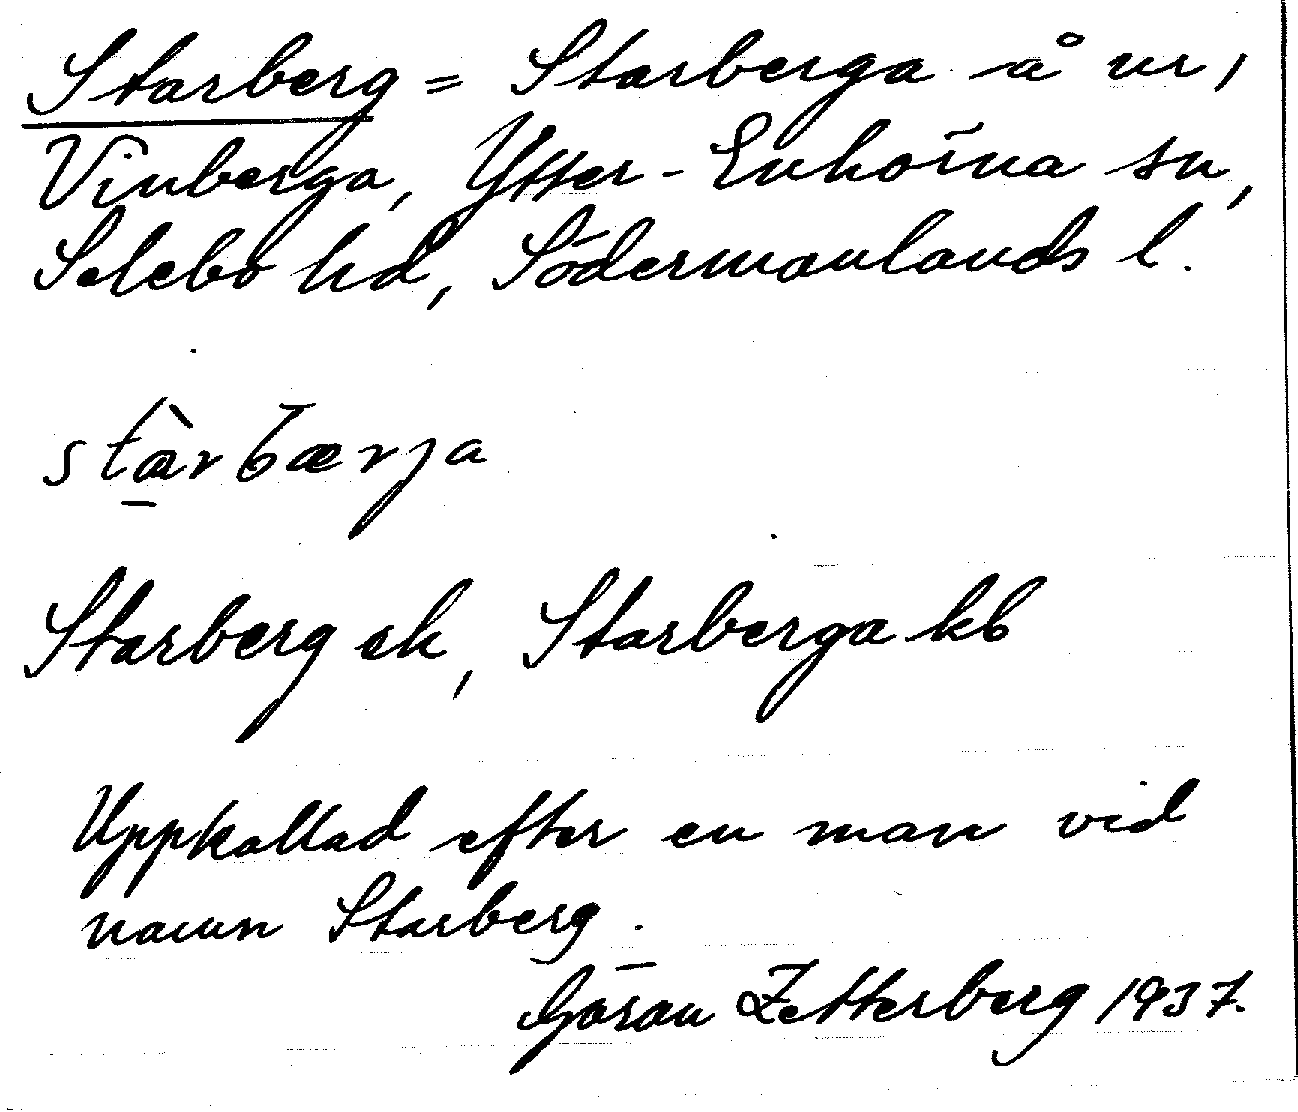 Starberg = Starberga å ur,
Vinberga, Ytter-Enhörna sn,
Selebo hd, Södermanlands l.
stàrbærja
Starberg ek, Starberga kb
Uppkallad efter en man vid
namn Starberg.
Göran Zetterberg 1937.